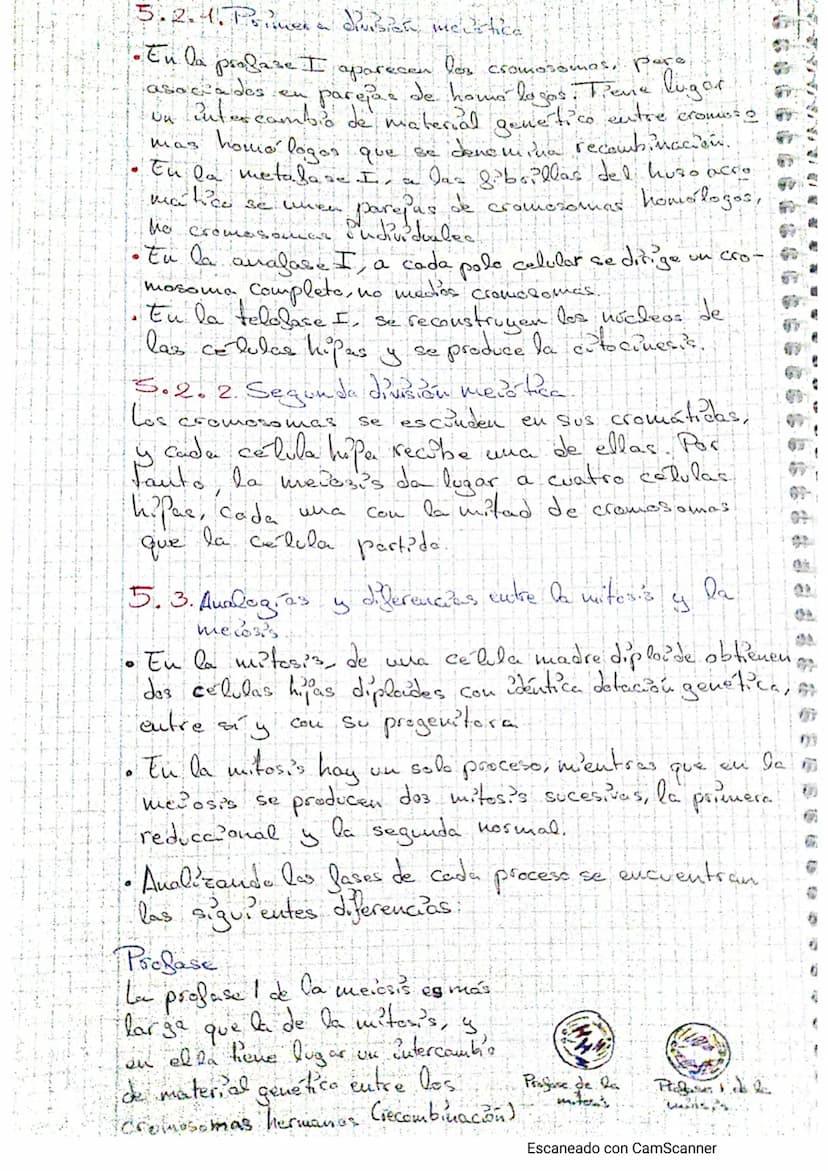 5.2.1. Primera división meiótica
• En la profase I aparecen los cromosomas, pero
asociados en parejas de homólogos. Tiene lugar
un intercambio de material genético entre cromoso
mas homólogos que se denomina recombinación.
• En la metafase I, a las fibrillas del huso acro
mático se unen parejas de cromosomas homólogos,
no cromosomas individuales
• En la anafase I, a cada polo celular se dirige un cro-
mosoma completo, no medios cromosomas.
• En la telofase I, se reconstruyen los núcleos de
las células hijas y se produce la citocinesis.
5.2.2. Segunda división meiótica
Los cromosomas se escinden en sus cromátidas,
y cada célula hija recibe una de ellas. Por
tanto, la meiosis da lugar a cuatro células
hijas, cada una con la mitad de cromosomas
que la célula partida.
5.3. Analogías y diferencias entre la mitosis y la
meiosis
• En la mitosis, de una célula madre diploide obtienen
dos células hijas diploides con idéntica dotación genética,
entre sí y con su progenitora
• En la mitosis hay un solo proceso, mientras que en la
meiosis se producen dos mitosis sucesivas, la primera
reduccional y la segunda normal.
• Analizando las fases de cada proceso se encuentran
las siguientes diferencias:
Profase
La profase I de la meiosis es más
larga que la de la mitosis, y
en ella tiene lugar un intercambio
de material genético entre los
cromosomas hermanos (recombinación)
Profase de la
mitosis
Profase I de la
meiosis
Escaneado con CamScanner